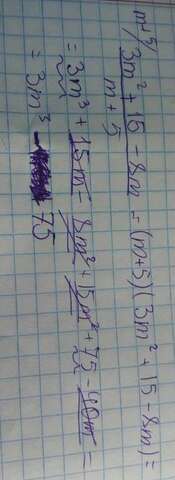 m+5/ 3m² + 15 - 8m = (m+5)(3m² + 15 - 8m) =
m + 5
= 3m³ + 15m - 8m² + 15m² + 75 - 40m =
= 3m³ - 75